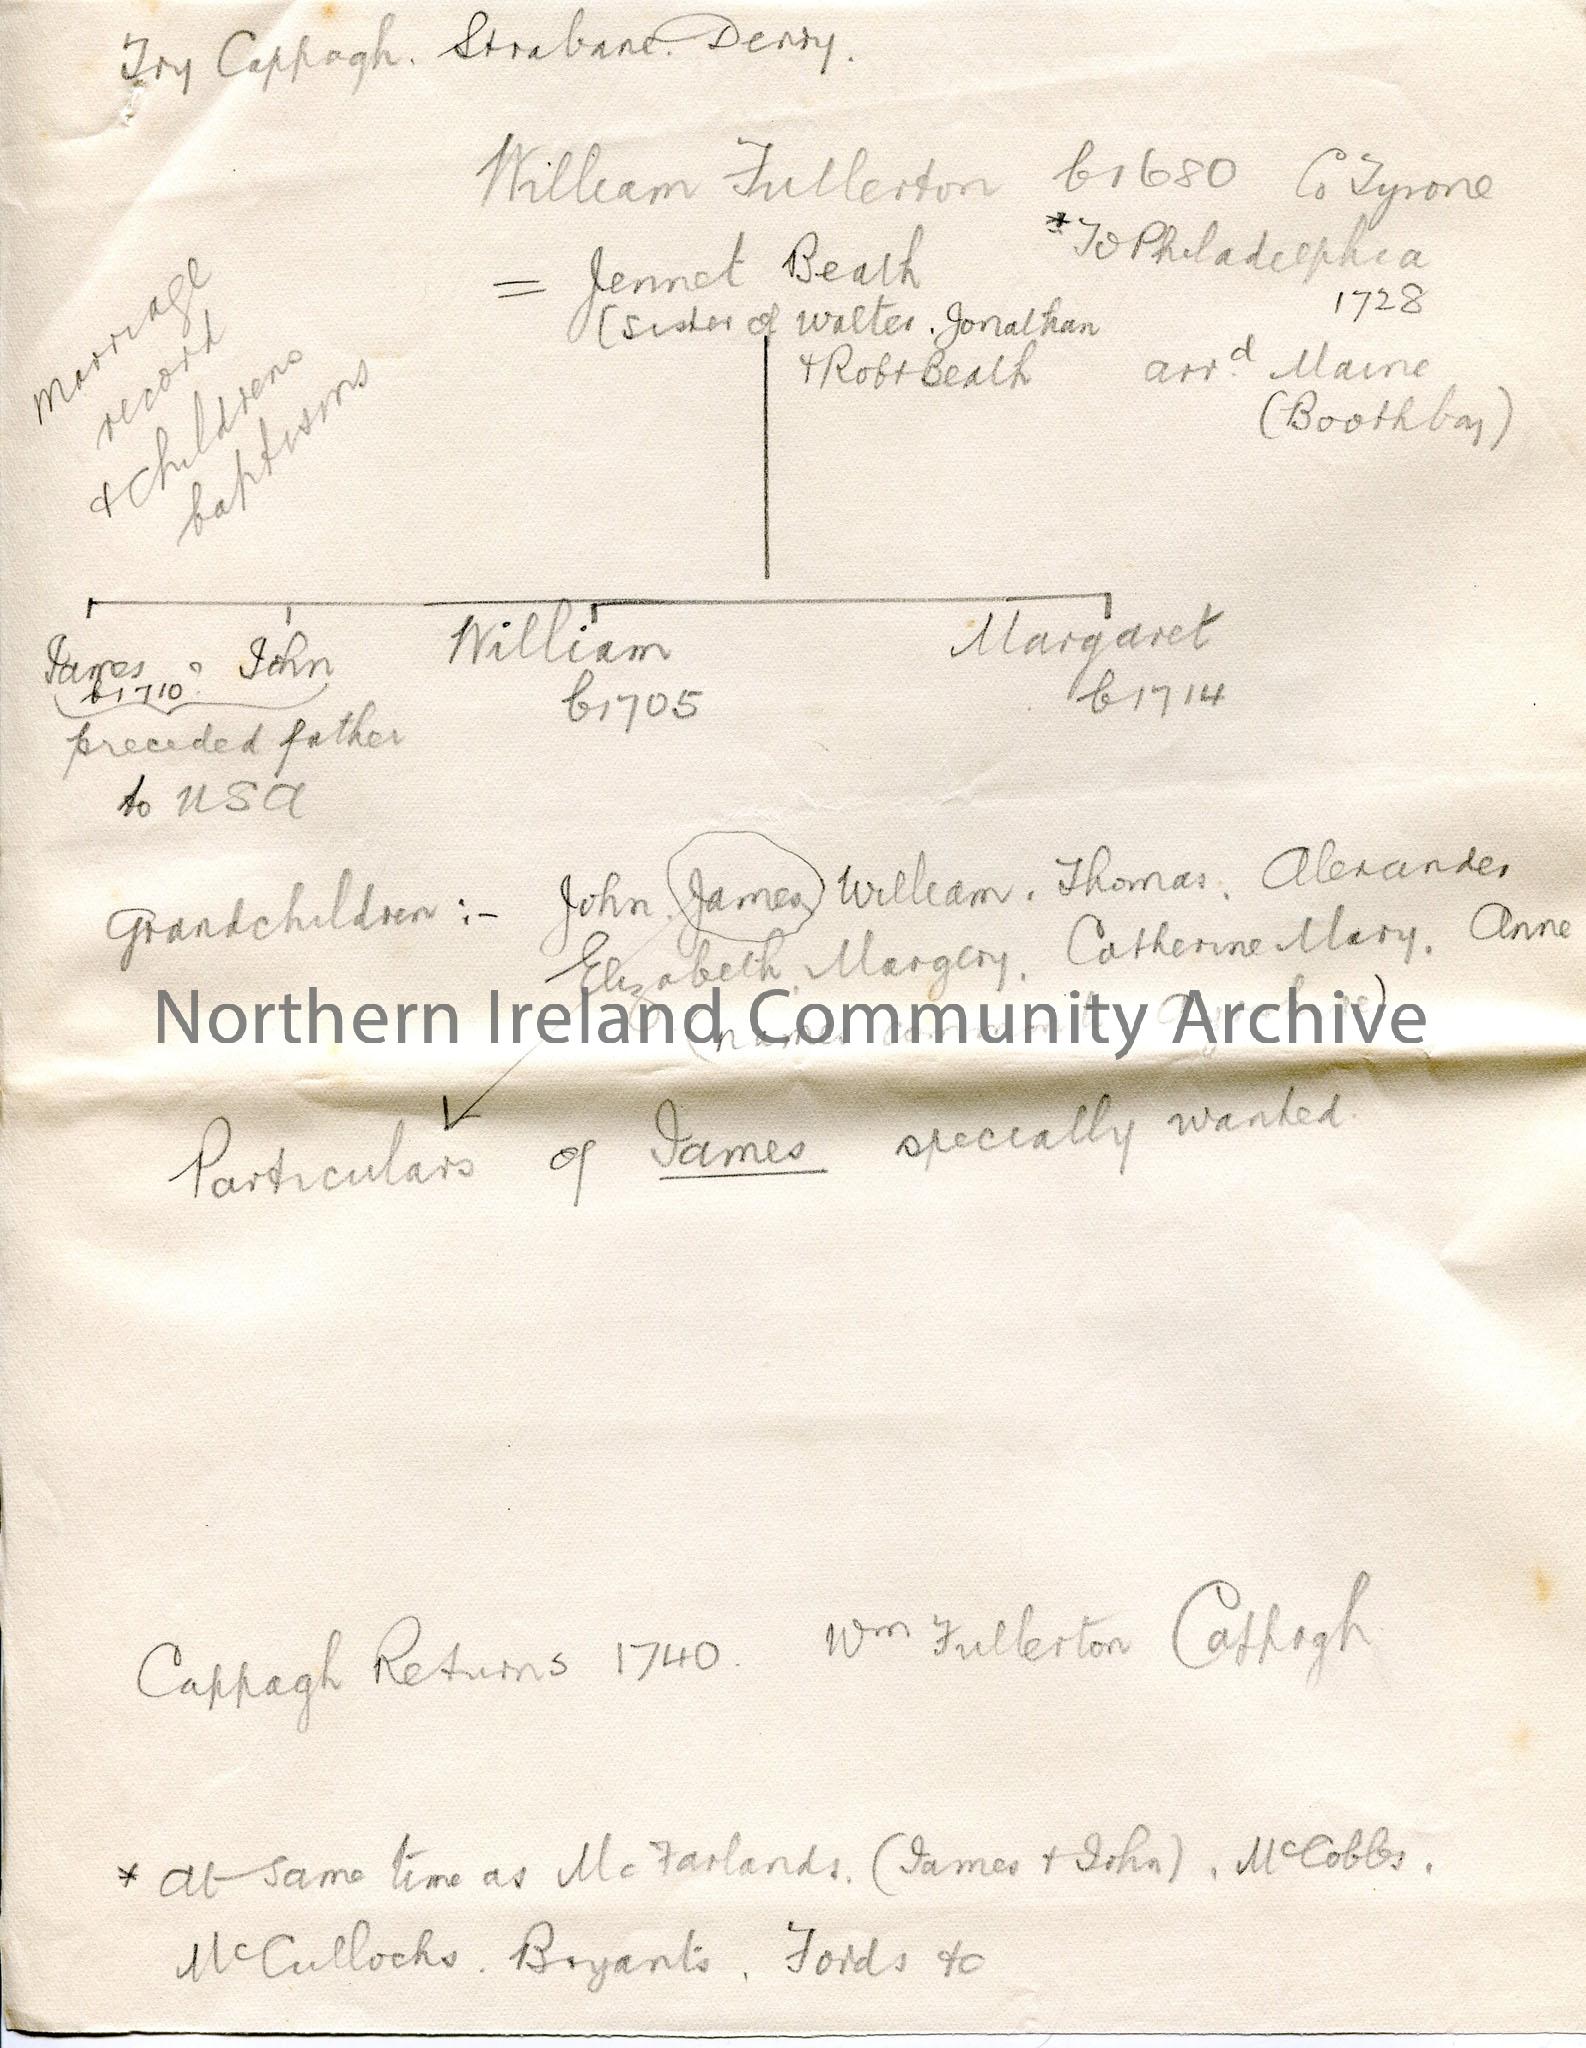 Try Cappagh. Strabane. Derry.
William Fullerton b1680 Co Tyrone
= Jennet Beath
*To Philadelphia
1728
(sister of Walter. Jonathan
+ Robt Beath
arrd Maine
(Boothbay)
marriage
record
+ childrens
baptisms
James ? John
b1710
preceded father
to USA
William
b1705
Margaret
b1714
Grandchildren :- John. James William. Thomas. Alexander
Elizabeth. Margery. Catherine Mary. Anne
(names
Northern Ireland Community Archive
Particulars of James specially wanted.
Cappagh Returns 1740. Wm Fullerton Cappagh
* At same time as McFarlands. (James + John). McCobbs.
McCullochs. Bryants. Fords &c